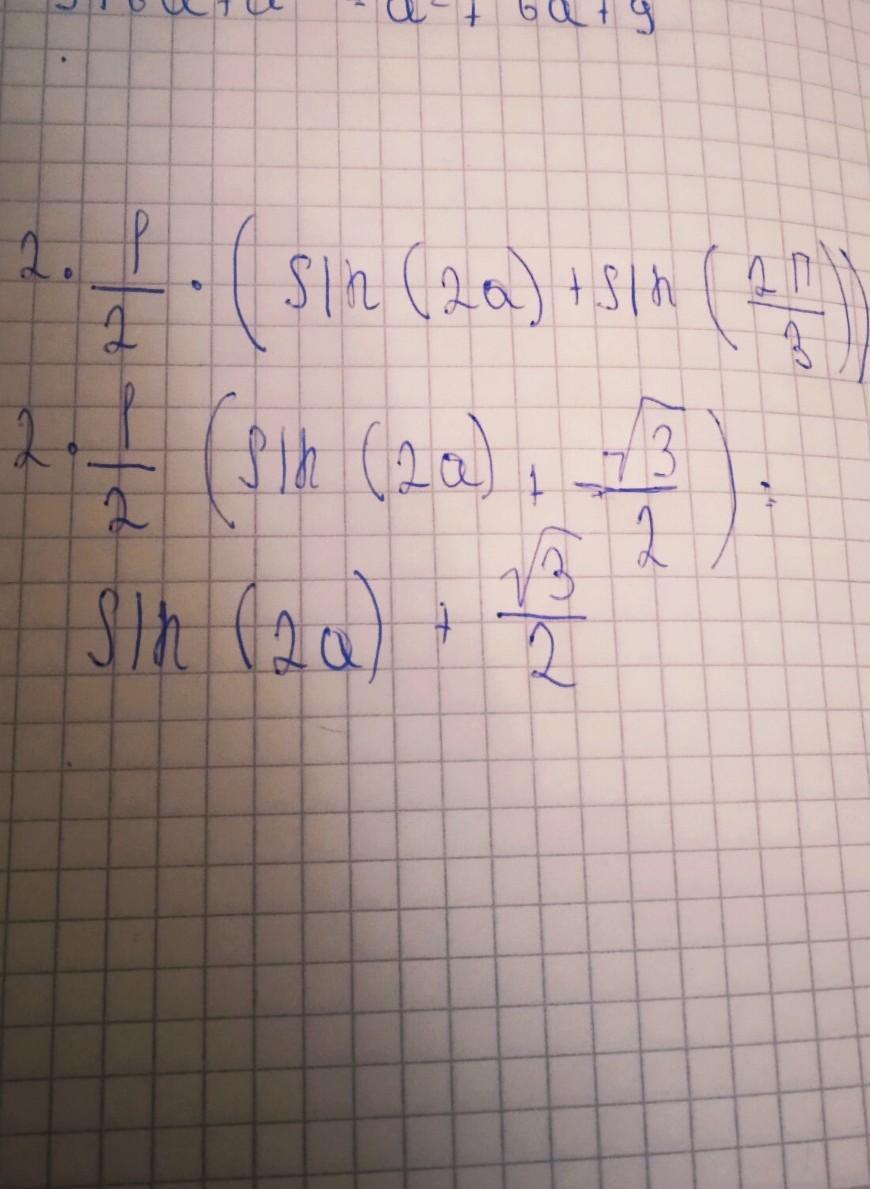 a² + 6a + 9
2 · 1/2 · (sin (2a) + sin (2π/3))
2 · 1/2 (sin (2a) + √3/2) =
sin (2a) + √3/2